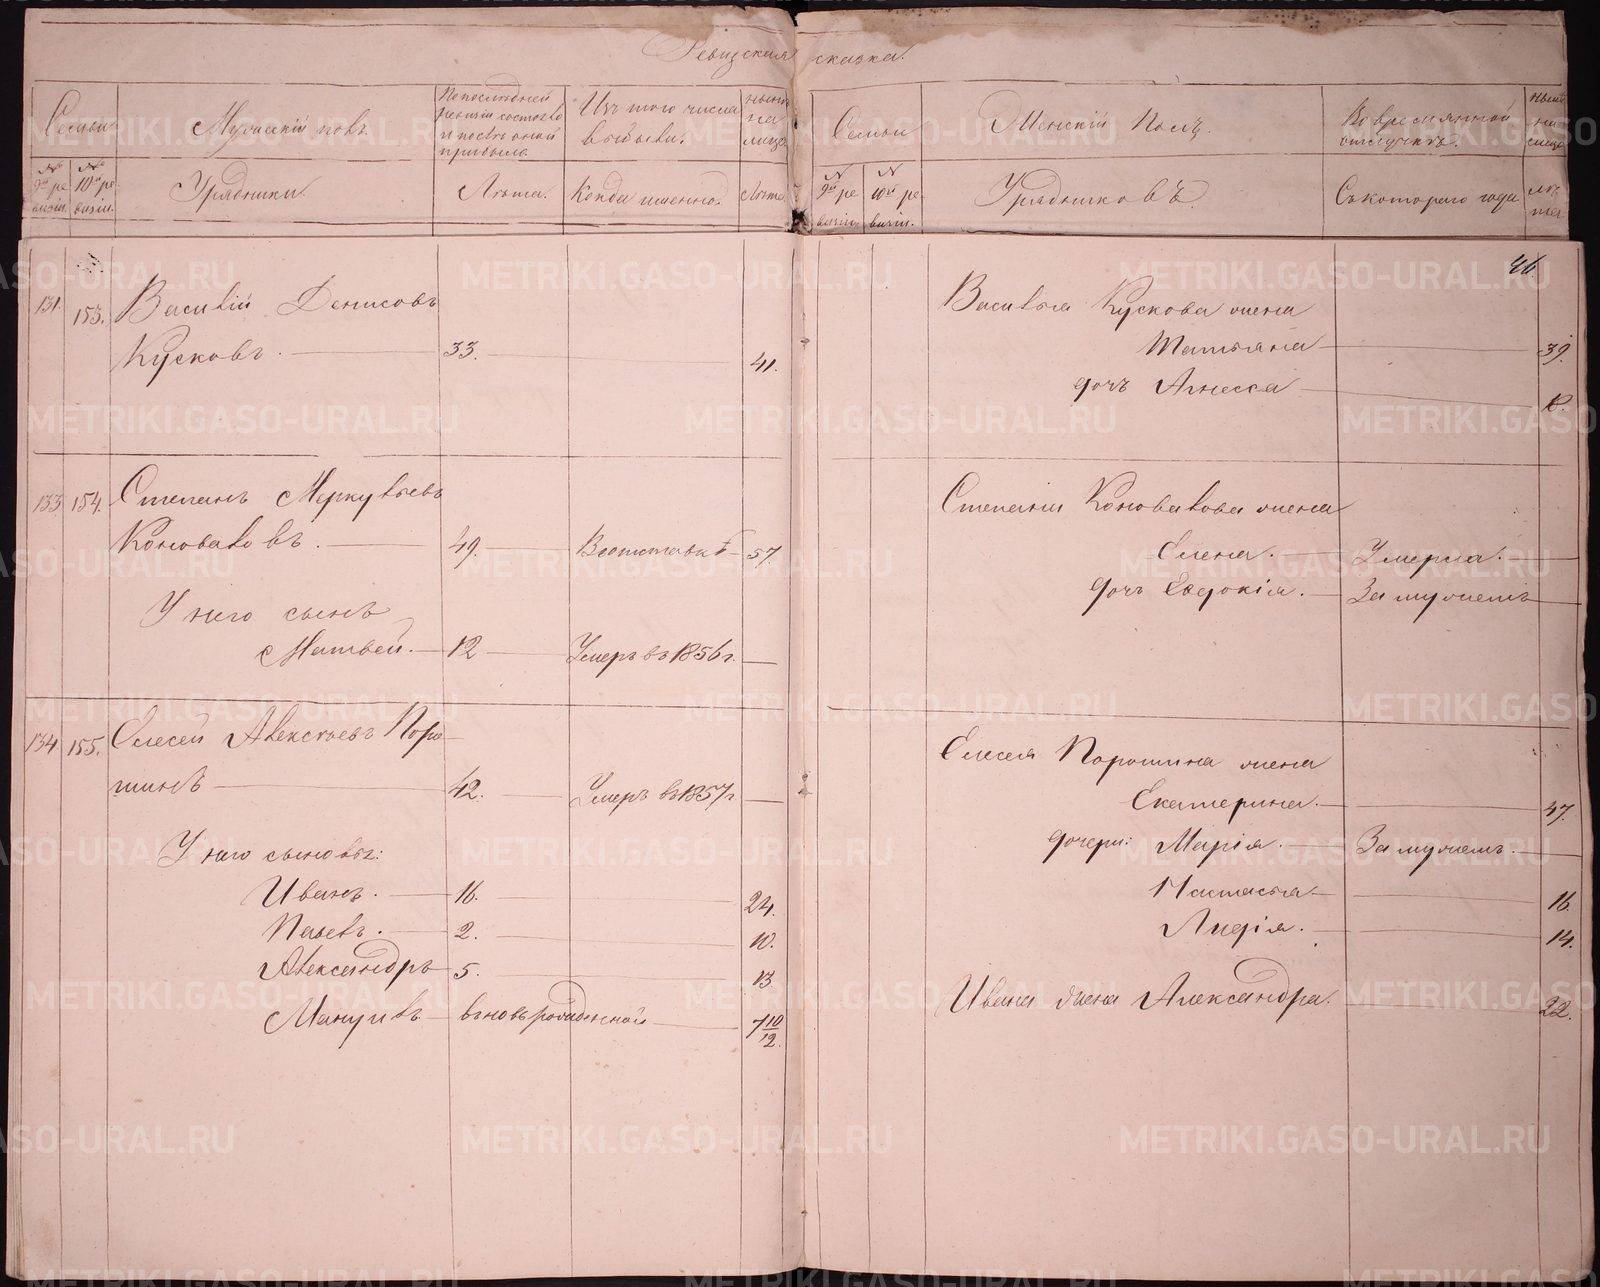 Ревизская сказка.
Семьи
Мужескій полъ.
По последней ревизіи состояло и после оной прибыло.
Изъ того числа выбыло.
ныне на лицо
№ 9й ревизіи.
№ 10й ревизіи.
Урядники.
Лѣта.
Когда именно.
Лѣта
131. 153. Василій Денисовъ
Кусковъ. 33. 41.
133 154. Степанъ Меркульевъ
Коноваловъ. 49. В отставке 57.
У него сынъ
Матвей. 12 Умеръ въ 1856 г.
134 155. Елисей Алексѣевъ Поро
шинъ 42. Умеръ въ 1857 г
У него сыновья:
Иванъ. 16. 24.
Павелъ. 2. 10.
Александръ 5. 13
вновь рожденной 7 10/12.
Семьи
Женскій Полъ.
Во временной отлучкѣ.
ныне на лицо
№ 9й ре визіи.
№ 10й ре визіи.
Урядниковъ.
Съ котораго года
лѣ та.
46.
Василья Кускова жена
Татьяна 39.
дочь Агнесса
Степана Коновалова жена
Елена. Умерла.
дочь Евдокія. Замужемъ
Елисея Порошина жена
Екатерина. 47.
дочери: Марія. Замужемъ.
Настасья 16
Лидія. 14.
Ивана жена Александра. 22.
METRIKI.GASO-URAL.RU